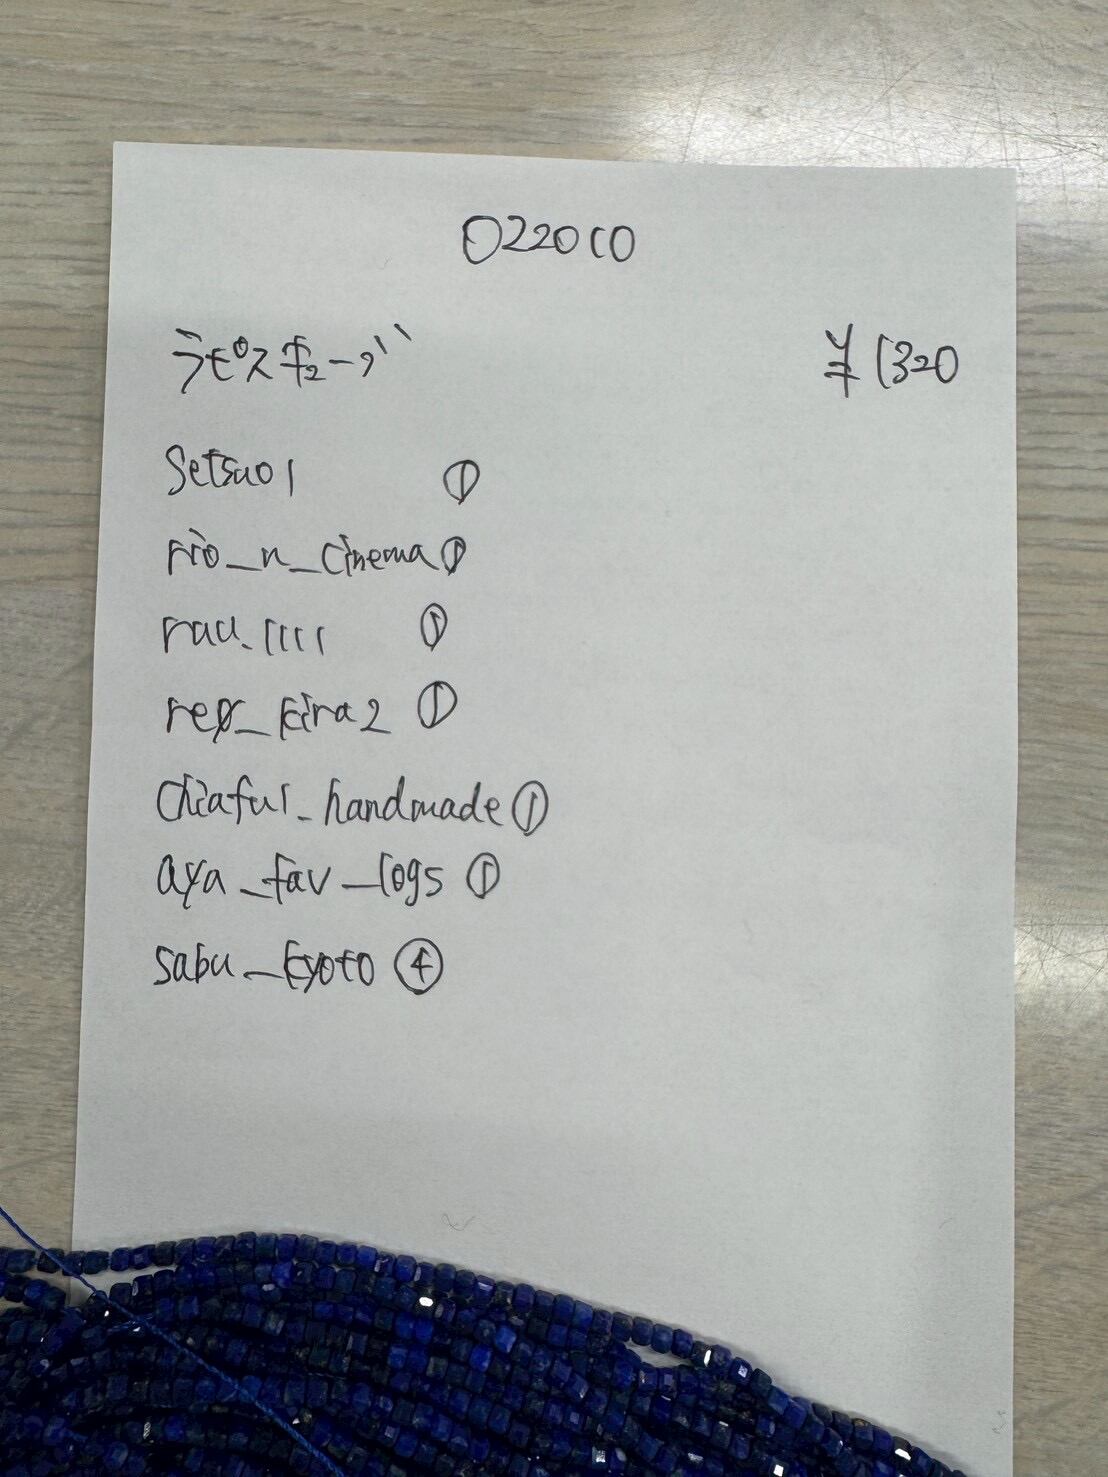 022010
ラピスキューブ ¥1320
Setsuo1 ①
rio_n_cinema ①
rau.1111 ①
rex_kira2 ①
Chiaful_handmade ①
aya_fav_logs ①
sabu_kyoto ④